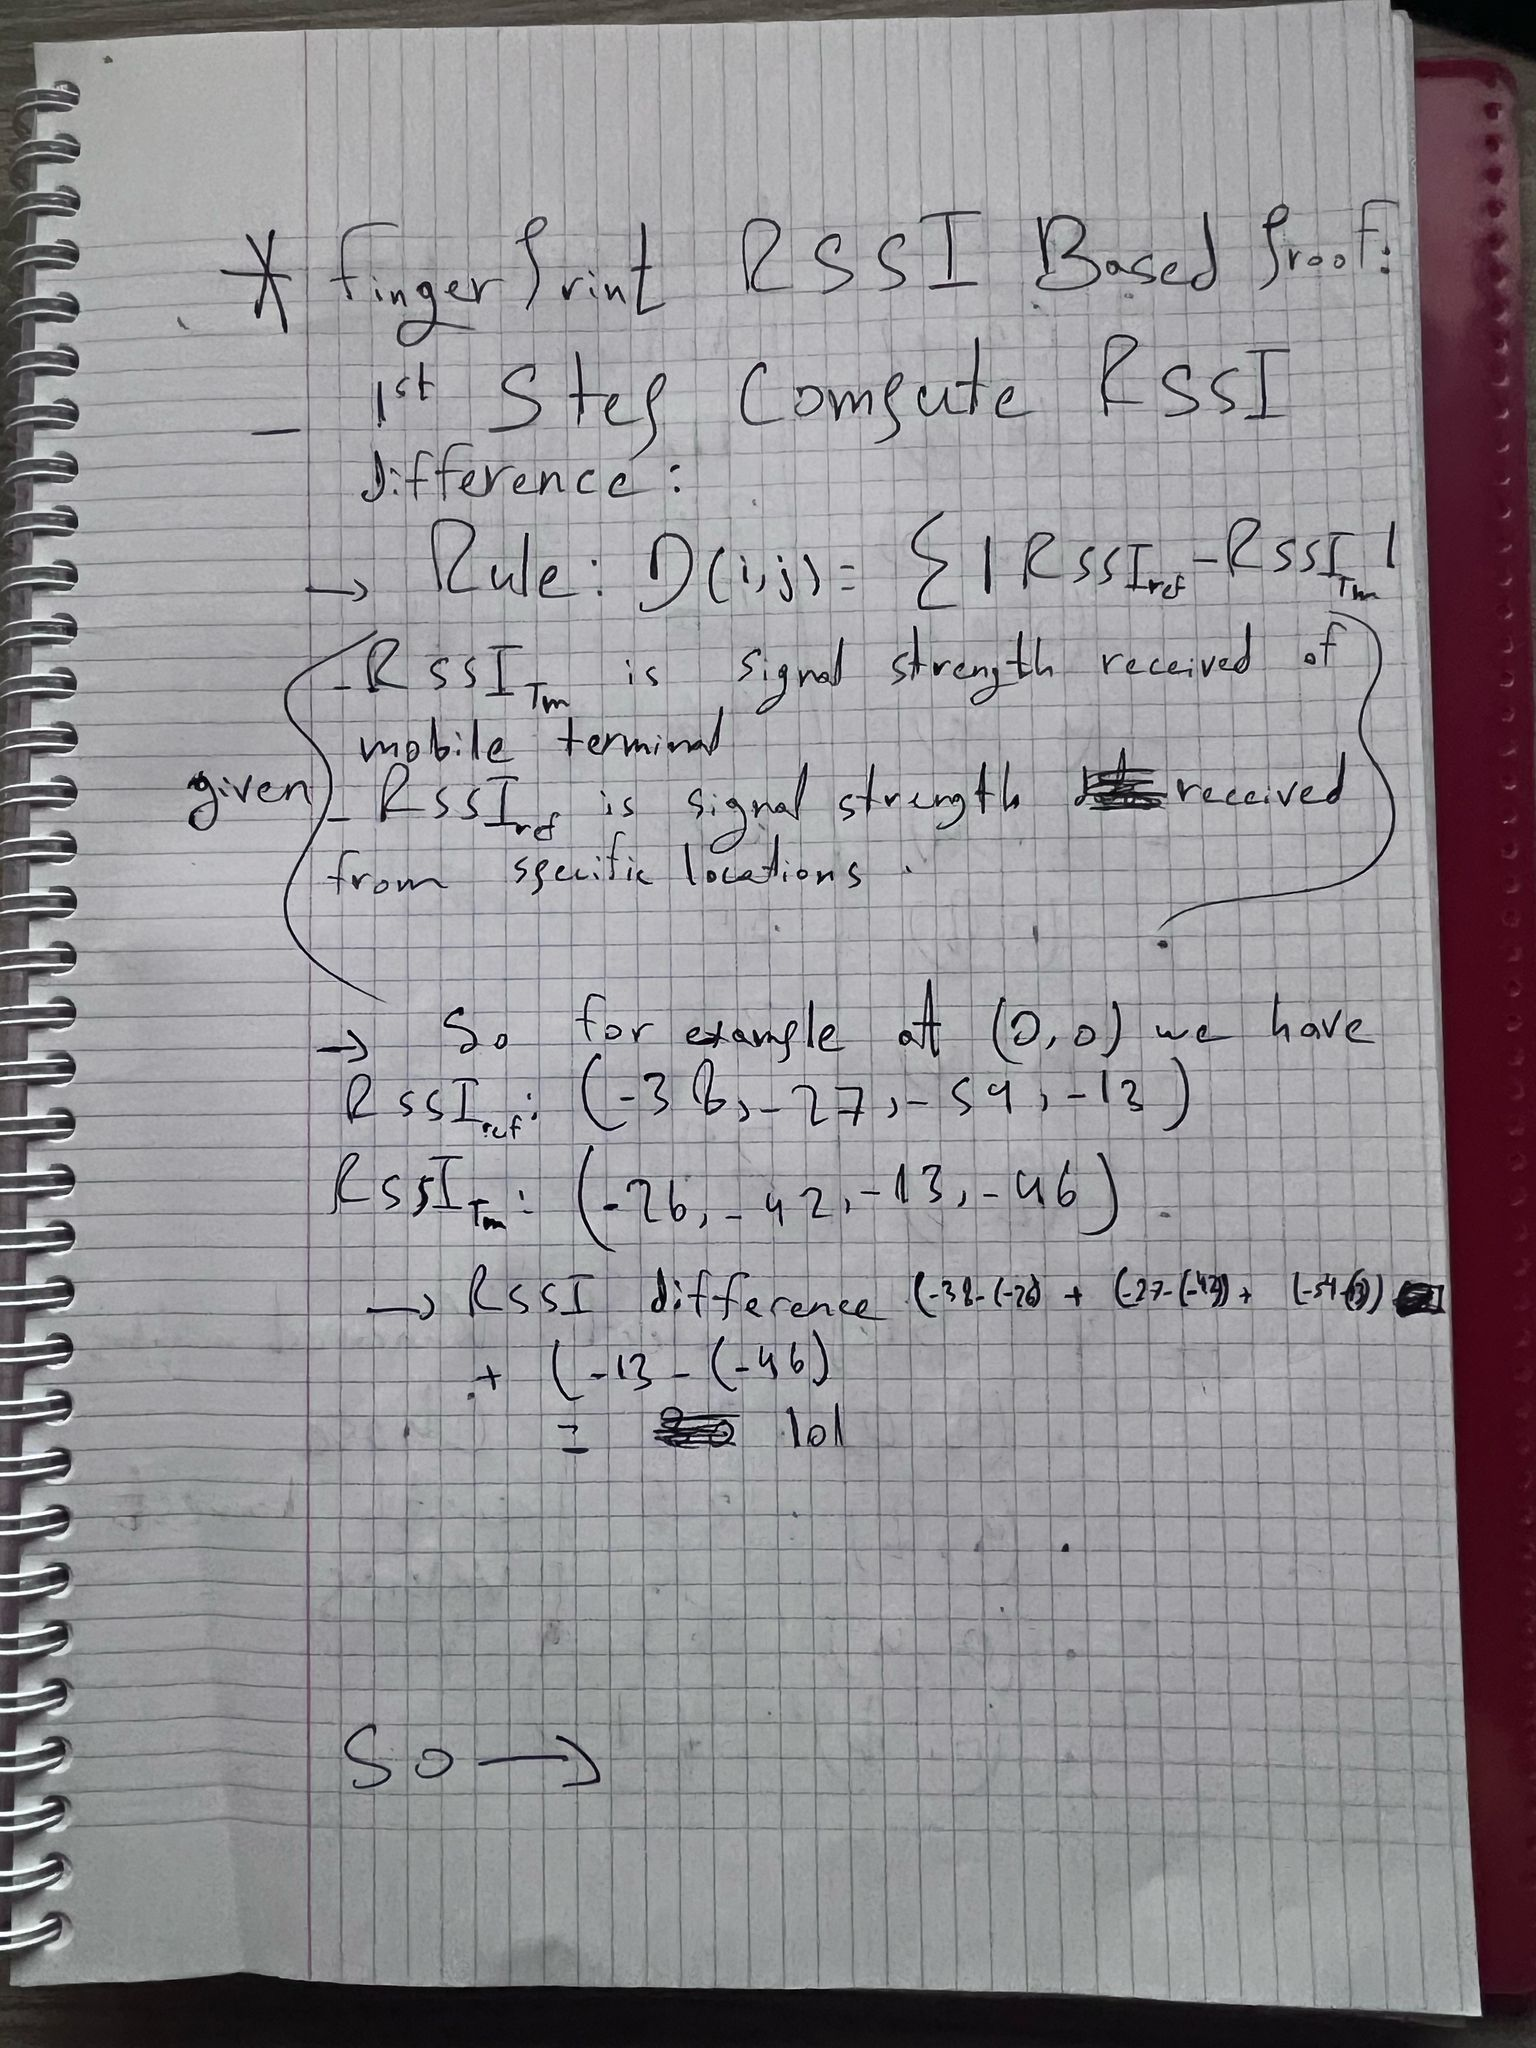 * FingerPrint RSSI Based Proof:
- 1st Step Compute RSSI
difference:
→ Rule: D(i,j) = Σ|RSSI_ref - RSSI_Tm|
- RSSI_Tm is signal strength received of
mobile terminal
given - RSSI_ref is signal strength received
from specific locations.
→ So for example at (0,0) we have
RSSI_ref: (-38, -27, -54, -13)
RSSI_Tm: (-26, -42, -13, -46)
→ RSSI difference (-38-(-26) + (-27-(-42)) + (-54-(13))
+ (-13-(-46)
= 101
So →